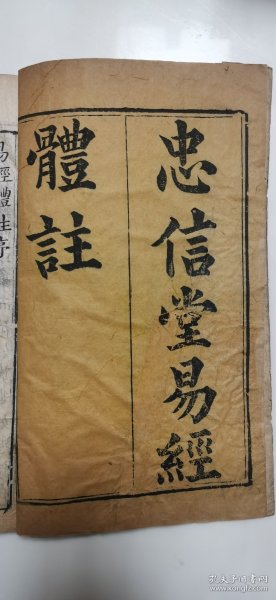 忠信堂易經
體註
易經體註序
孔夫子旧书网